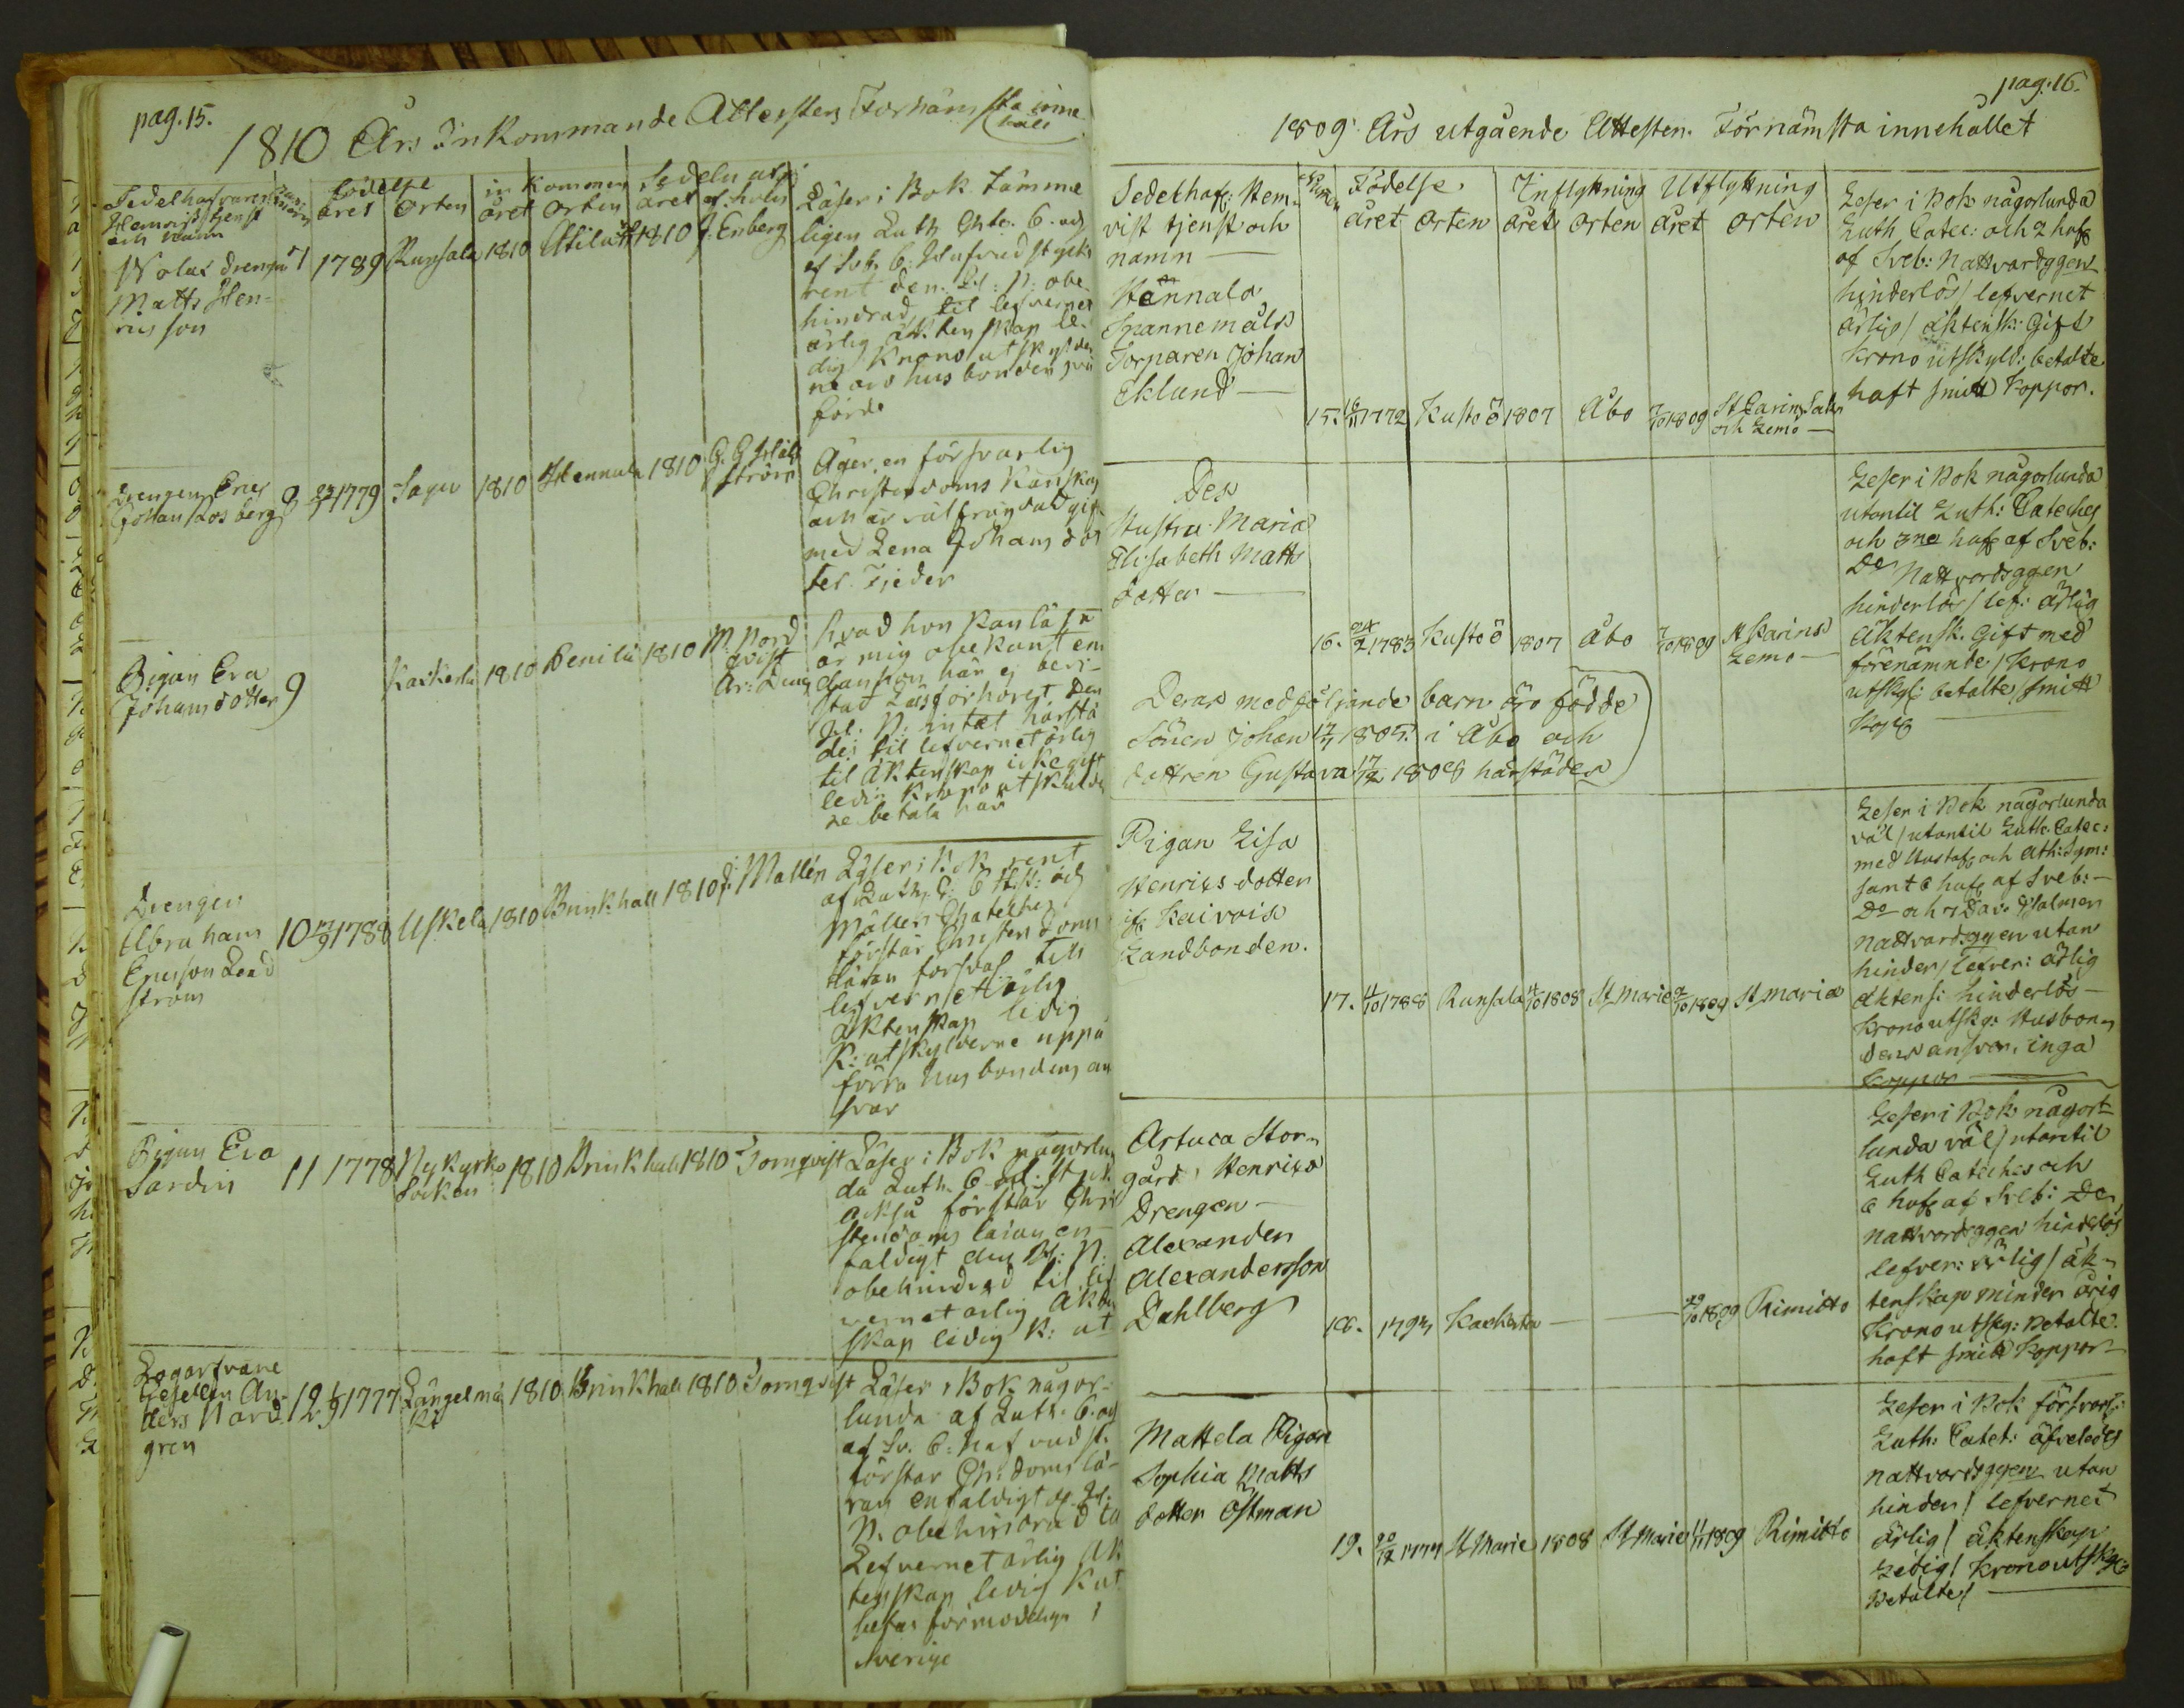 pag. 15.
1810 Års Inkommande Attesters Förnämsta inne
håll
Sedelhafvarens
Hemvist tjenst
och namn
födelse
året orten
in kommen
året orten
Sedeln
året
drengen
Matts Hen=
ricsson
7 1789 Runsala 1810 Attilä 1810 J. Enberg
Läser i Bok tämme
ligen Luth. Chte: 6. och
af Sveb. 6. Hufvud stycke
rent den H: N: obe
hindrad, til lefvernet
ärlig äktenskap le
dig Krono utskylder
ne hus bonden
förde
Drengen Eric
Johan Rosberg
8 1779 Sagu 1810 Hennala 1810 G. G. Häll
ström
Äger en försvarlig
Christendoms Kunskap
och är välfrägdad gift
med Lena Johans dot
ter Fjeder
Pigan Eva
Johansdotter
9 Kackerta 1810 Penilä 1810 M. Nord
qvist
hvad hon kan läsa
är mig obekant em
dan hon här ej beri-
tad Läsförhöret. Den
H: N: intet härstä
des til lefvernet ärlig
til Äktenskap icke gift
ledig Krono utskylder
ne betala här
Drengen
Abraham
Ericsson Lend
ström
10 17/9 1788 Uskela 1810 Brinkhall 1810 J. Mallén
Läser i Bok rent
af Luth. C: 6 H.st: och
Möllers Chateches
förstår Christendoms
läran försvar: till
lefvernet ärlig
äktenskap ledig
K: utskylderne uppå
förra husbondens an
svar
Pigan Eva
Sardin
11 1778 Nykyrko
Socken
1810 Brinkhall 1810 Tornqvist
Läser i Bok någorlun
da Luth. 6 H: st:
också förstår Chri
stendoms läran en
faldigt den H: N:
obehindrad til lef
vernet ärlig Äkten
skap ledig K: ut
Logarfvare
Gesellen An-
ders Nord
gren
12 1/9 1777 Längelmä
ki
1810 Brinkhall 1810 Tornqvist
Läser i Bok någor-
lunda af Luth. 6. och
af Sv. 6: Hufvudst.
förstår Ch: doms lä-
ran enfaldigt d. H.
N. obehindrad til
Lefvernet ärlig Äk
tenskap ledig K: ut
förmodeligen i
Sverige
pag: 16.
1809 Års utgående Attester. Förnämsta innehållet
Sedelhaf: Hem-
vist tjenst och
namn —
Födelse
året orten
Inflyttning
året orten
Utflyttning
året orten
Hännala
Spannemåls
Torparen Johan
Eklund —
15. 16/11 1772 Kustö 1807 Åbo 7/10 1809 St Carins
och Lemo —
Leser i Bok någorlunda
Luth Catec: och 2 huf
af Sveb: Nattvardzgen
hinderlös / lefvernet
ärlig / äktensk: Gift
krono utskyld: betalte
haft smitt koppor.
Des
Hustru Maria
Elisabeth Matts
dotter —
16. 24/2 1783 Kustö 1807 Åbo 7/10 1809 St Karins
Lemo —
Leser i Bok någorlunda
utantil Luth: Cateches
och 3ne huf af Sveb:
Do Nattvardsggen
hinderlös / lef: ärlig
äktensk. Gift med
förenämnde / krono
utskyl: betalte / smitt
kop
Deras medföljande barn äro födde
Sonen Johan 1805 i Åbo och
dottren Gustava 17/2 1808 härstädes
Pigan Lisa
Henrics dotter
if: Kaivois
Landbonden.
17. 4/10 1788 Runsala 4/10 1808 St Marie 9/10 1809 St Marie
Leser i Bok någorlunda
väl / utantil Luth. Catec:
med Hustaf och Ath: Sym:
samt 6 huf af Sveb: —
Do och 7 Dav. Psalmer
Nattvardsggen utan
hinder / lefver: ärlig
äktens: hinderlös —
krono utskg: Husbon-
dens ansvar, inga
koppor —
Artuca Stor-
gård Henrics
Drengen —
Alexander
Alexandersson
Dahlberg
18. 1797 Kackerta — — 29/10 1809 Rimitto
Leser i Bok någort
lunda väl / utantil
Luth Cateches och
6 huf af Sveb: Do
Nattvardsggen hinderlös
lefver: ärlig / äk-
tenskap minder årig
krono utskg: betalte.
haft smitt koppor —
Mattela Pigan
Sophia Matts
dotter Östman
19. 20/12 1777 St Marie 1808 St Marie 11/11 1809 Rimitto
Leser i Bok försvarl:
Luth: Catet: äfveledes
nattvardsggen utan
hinder / lefvernet
ärlig / äktenskap
Ledig / kronoutskg:
betalte /